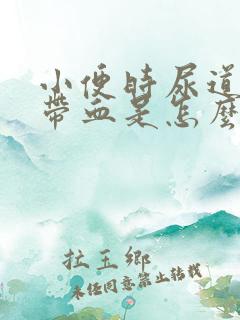 小便時尿道
帶血是怎麼
拉玉鄉
未經同意禁止轉載